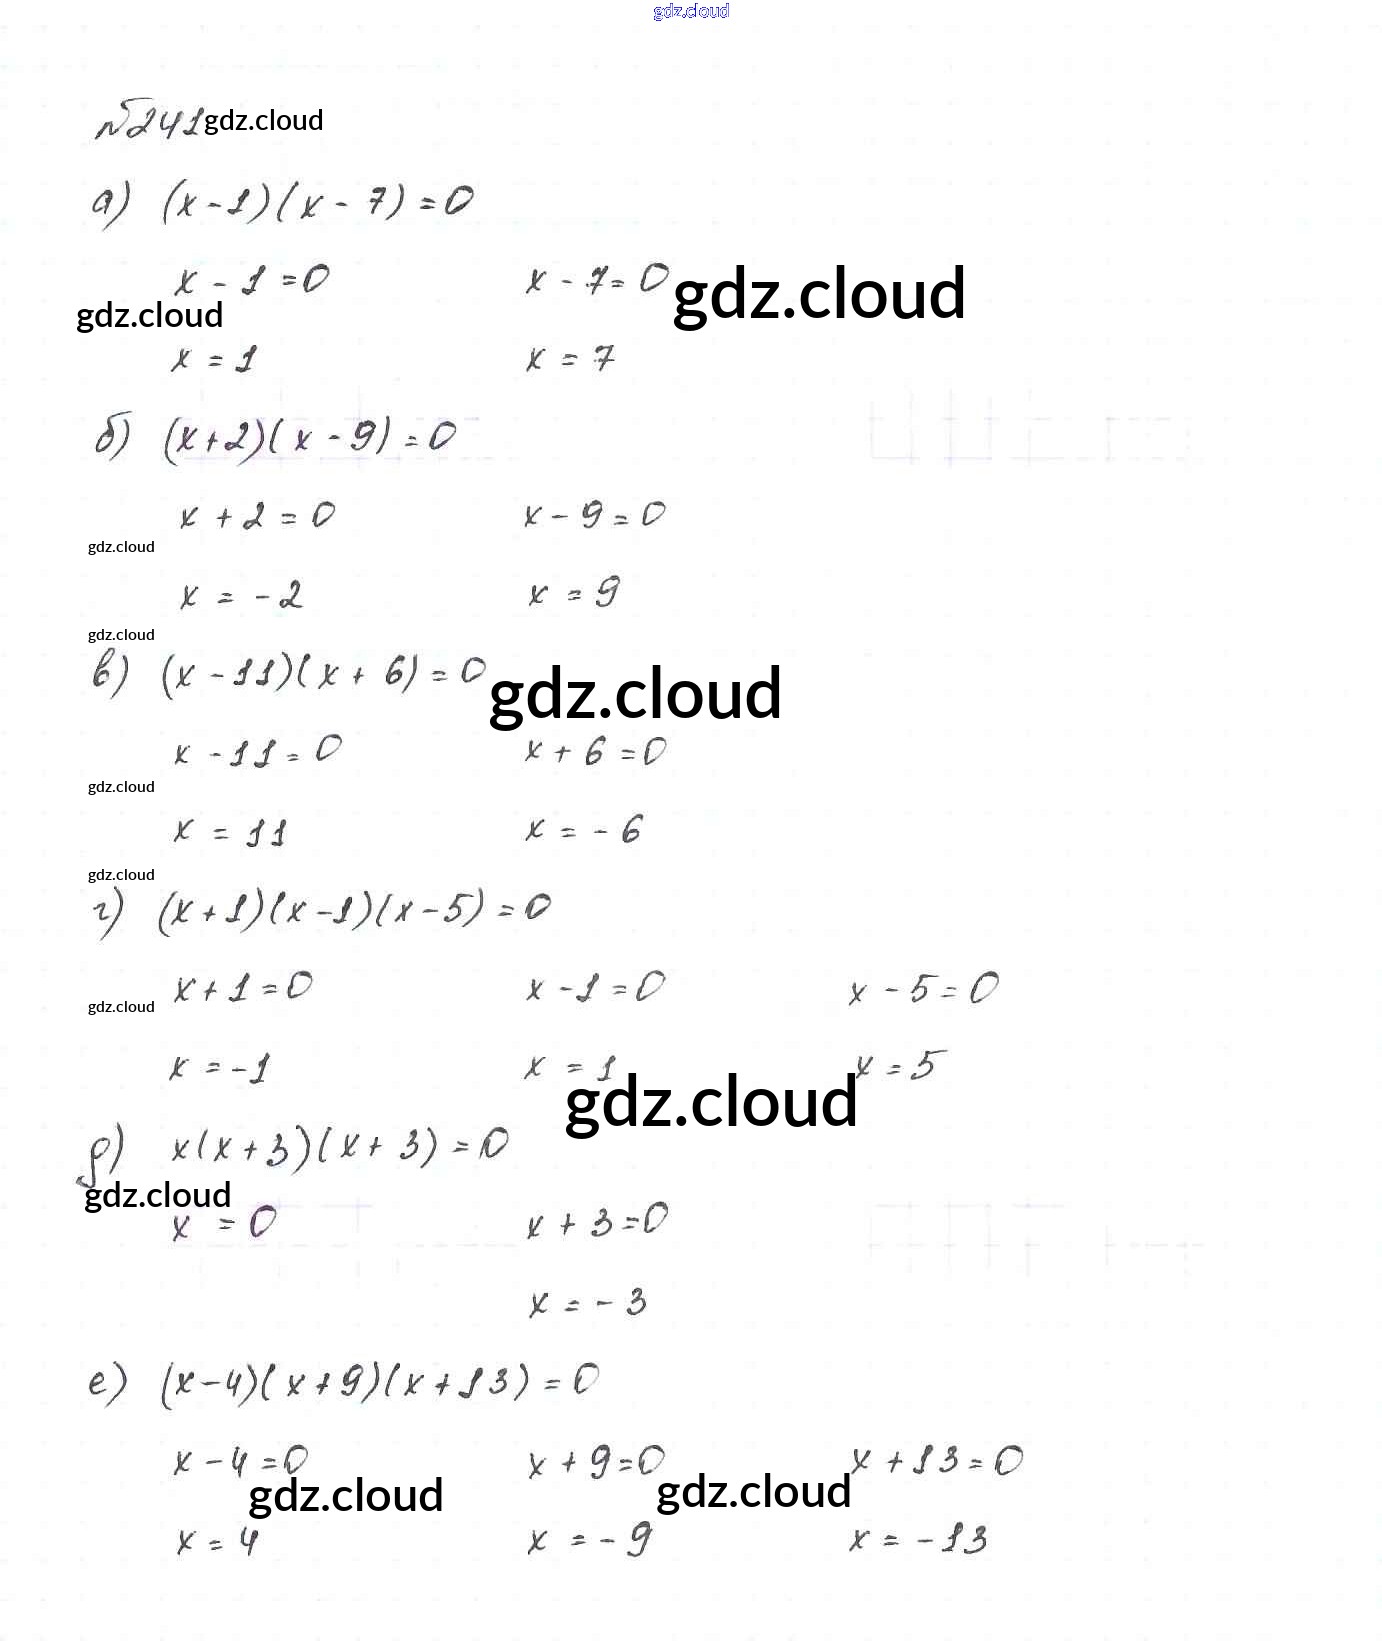 gdz.cloud
№241 gdz.cloud
а) (x-1)(x-7)=0
x-1=0 x-7=0 gdz.cloud
gdz.cloud
x=1 x=7
б) (x+2)(x-9)=0
x+2=0 x-9=0
gdz.cloud
x=-2 x=9
gdz.cloud
в) (x-11)(x+6)=0 gdz.cloud
x-11=0 x+6=0
gdz.cloud
x=11 x=-6
gdz.cloud
г) (x+1)(x-1)(x-5)=0
x+1=0 x-1=0 x-5=0
gdz.cloud
x=-1 x=1 x=5
gdz.cloud
д) x(x+3)(x+3)=0
gdz.cloud
x=0 x+3=0
x=-3
е) (x-4)(x+9)(x+13)=0
x-4=0 x+9=0 x+13=0
gdz.cloud gdz.cloud
x=4 x=-9 x=-13